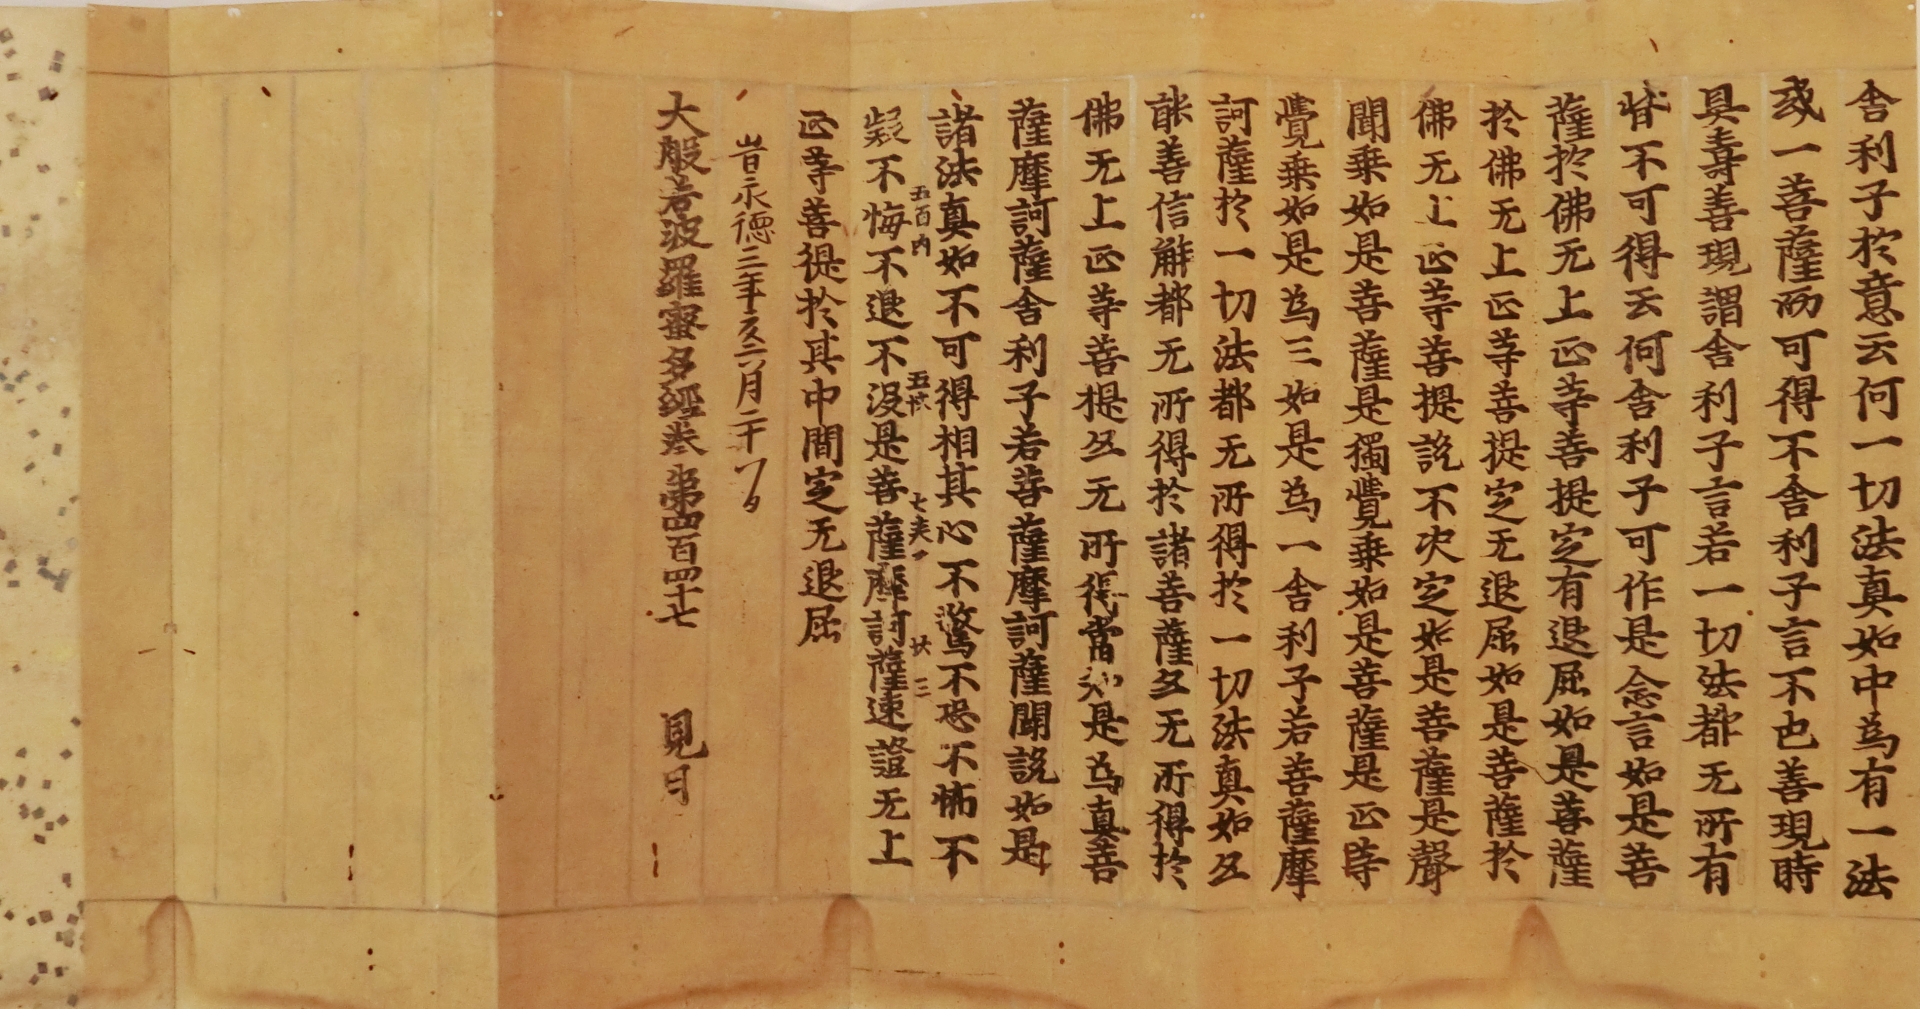 舎利子於意云何一切法真如中為有一法
或一菩薩而可得不舎利子言不也善現時
具壽善現謂舎利子言若一切法都无所有
皆不可得云何舎利子可作是念言如是菩
薩於佛无上正等菩提定有退屈如是菩薩
於佛无上正等菩提定无退屈如是菩薩於
佛无上正等菩提説不决定如是菩薩是聲
聞乗如是菩薩是獨覺乗如是菩薩是正等
覺乗如是為三如是為一舎利子若菩薩摩
訶薩於一切法都无所得於一切法真如叉
能善信解都无所得於諸菩薩叉无所得於
佛无上正等菩提叉无所得當知是為真菩
薩摩訶薩舎利子若菩薩摩訶薩聞説如是
諸法真如不可得相其心不驚不恐不怖不
疑不悔不退不没是菩薩摩訶薩速證无上
正等菩提於其中間定无退屈
永德三年亥二月二十
大般若波羅蜜多經巻第四百四十七 見